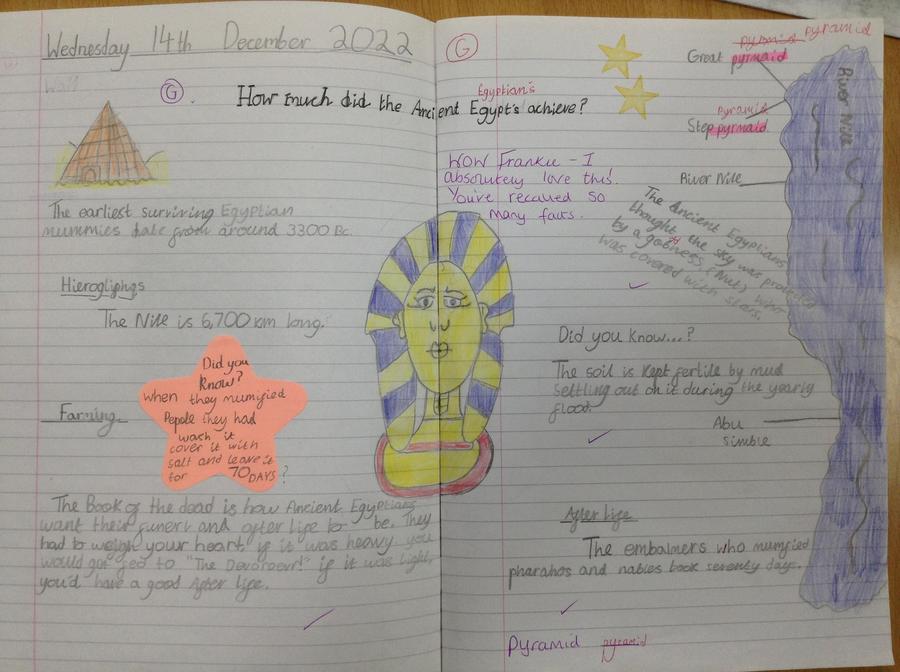 Wednesday 14th December 2022
G
How much did the Ancient Egypt's achieve?
Egyptian's
The earliest surviving Egyptian
mummies date from around 3300 BC.
Hierogliphgs
The Nile is 6,700 km long.
Did you
Know?
when they mumyfied
Pepole they had
wash it
cover it with
salt and leave it
for 70 DAYS?
Farming
The Book of the dead is how Ancient Egyptians
want their funerl and after life to be. They
had to weigh your heart if it was heavy you
would get fed to "The Devoroer!" if it was light,
you'd have a good After life.
G
WOW Frankie - I
absolutely love this!
You've recalled so
many facts.
pyramid pyramid
Great pyrmaid
pyramid
Step pyrmaid
River Nile
River Nile
The Ancient Egyptians
thought the sky was protected
by a godness (Nut) who
was covered with stars.
Did you know...?
The soil is kept fertile by mud
settling out on it during the yearly
flood.
Abu
simble
After life
The embalmers who mumyfied
pharahos and nobles took seventy days.
Pyramid pyramid